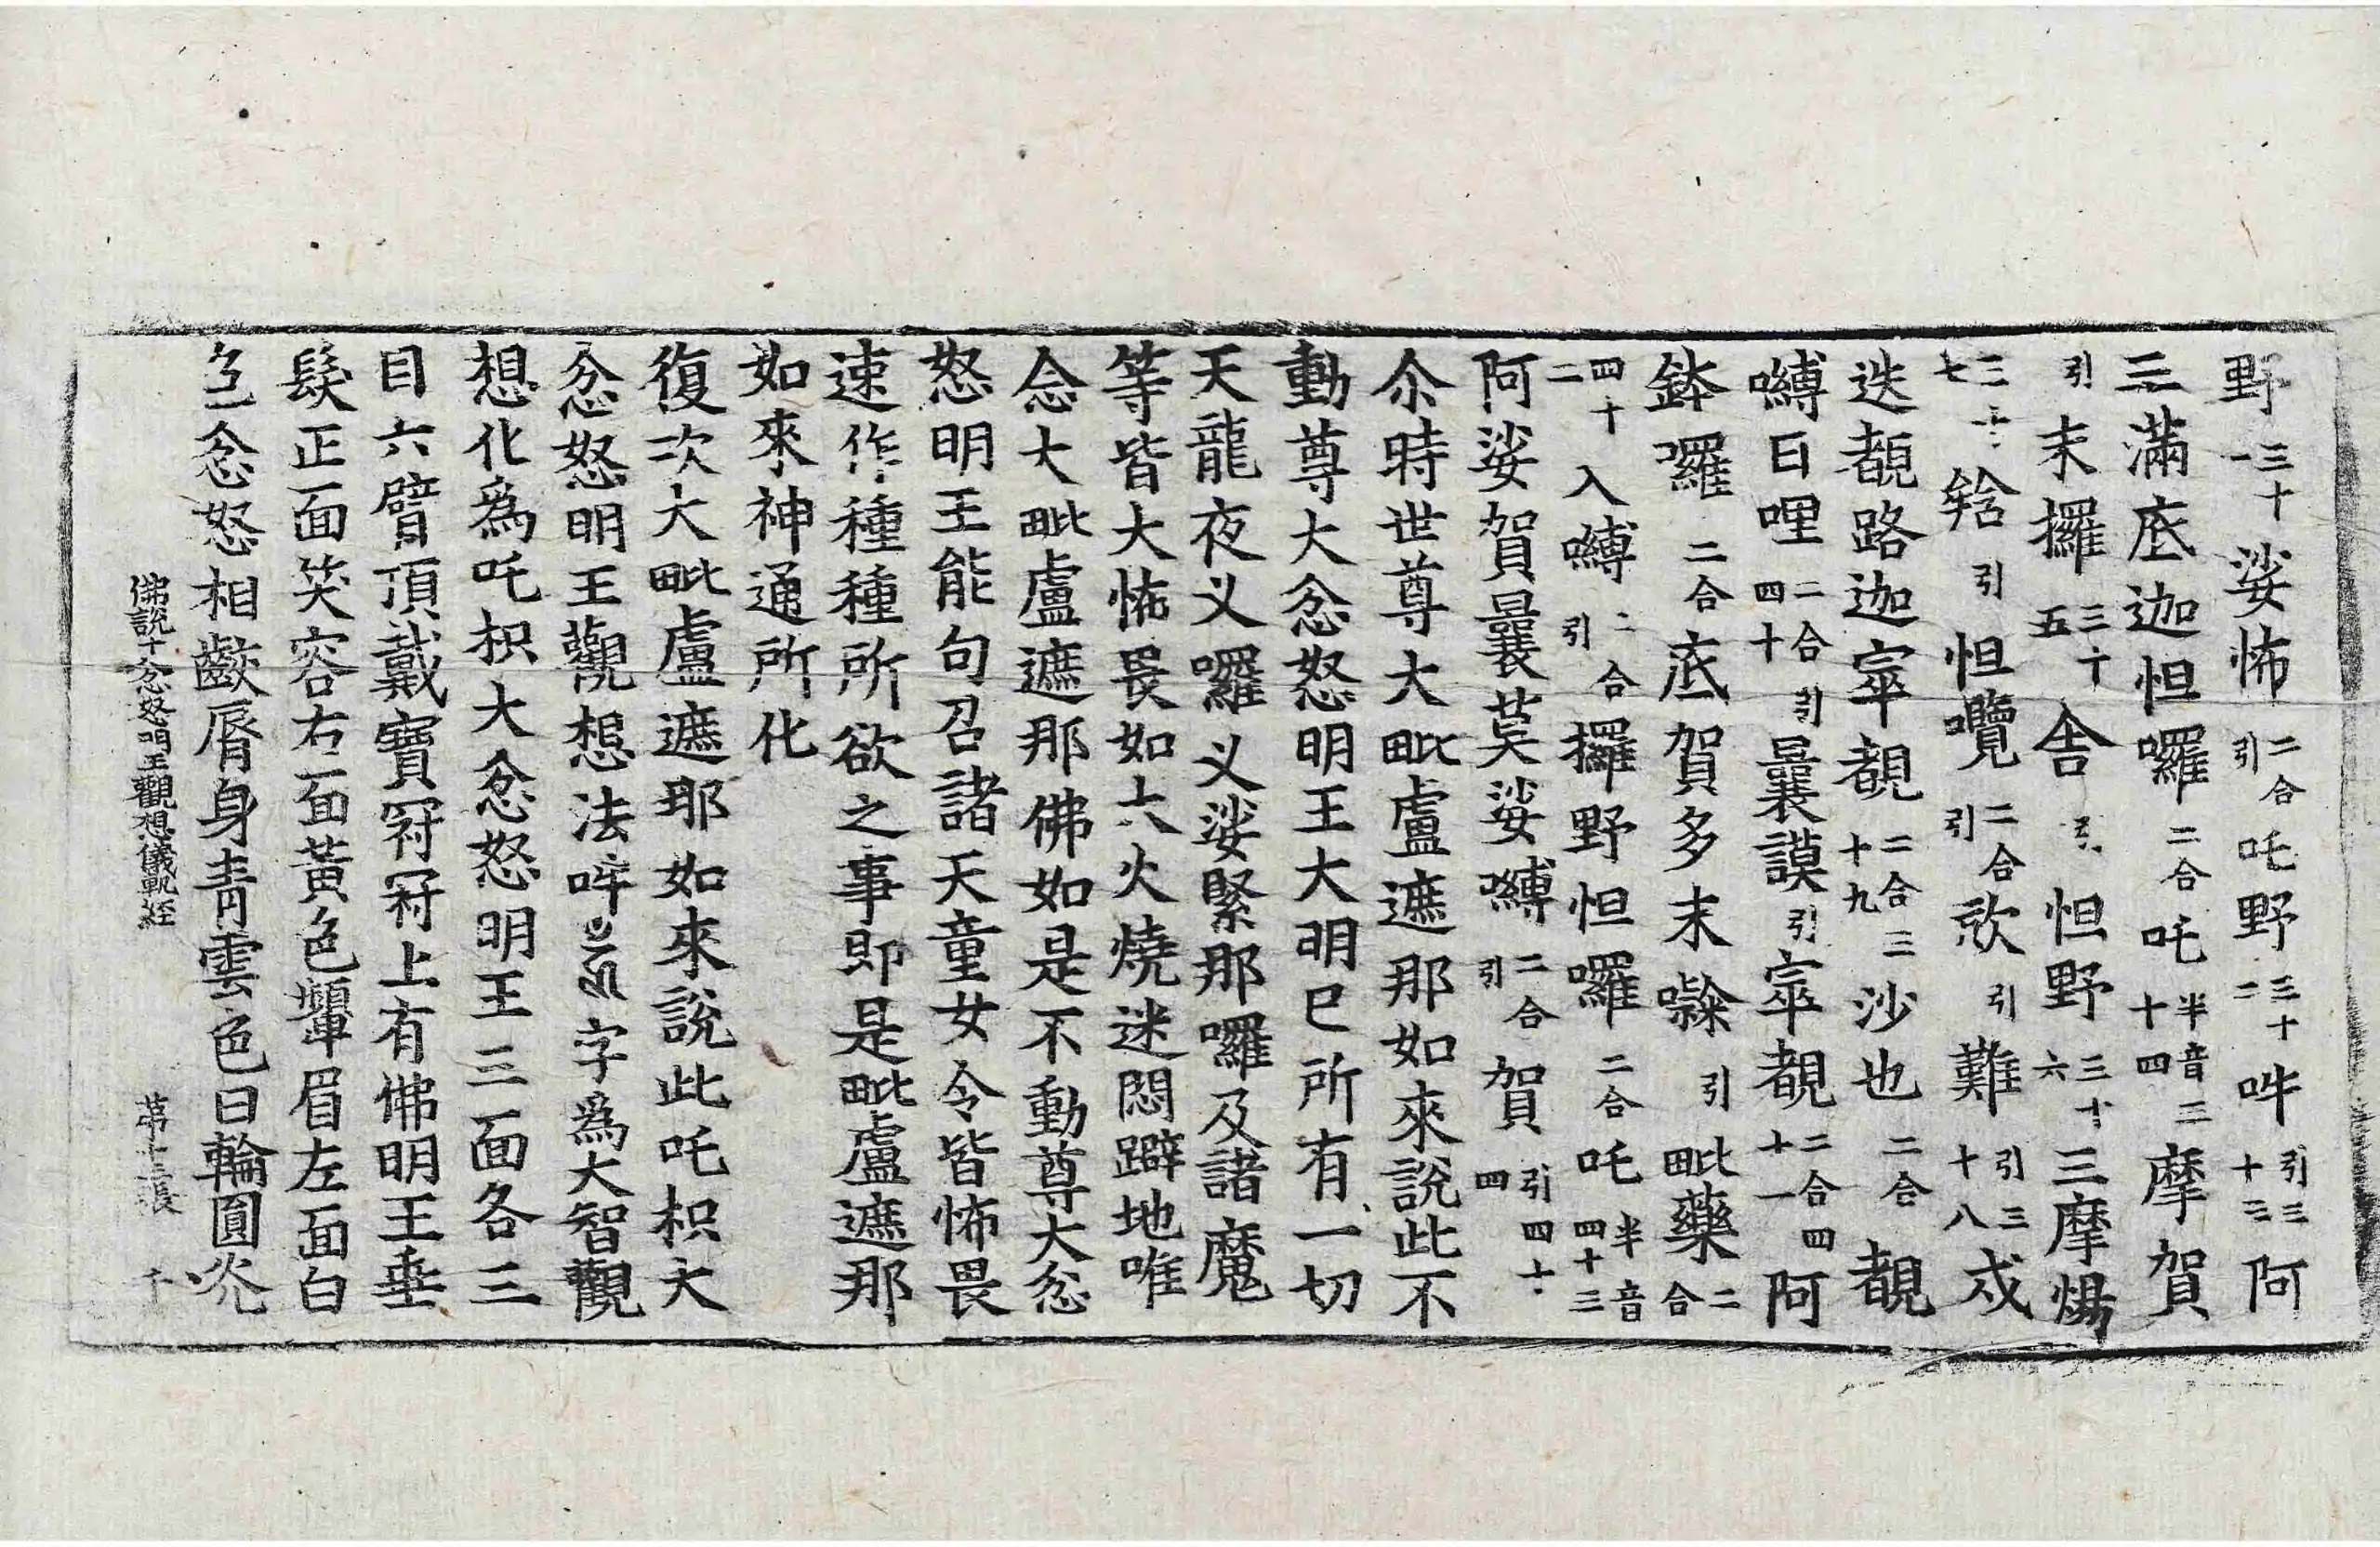 野三十一娑怖二合引吒野三十二吽引三十三阿
三滿底迦怛囉二合吒半音三十四摩賀
引末攞三十五舎引怛野三十六三摩煬
三十七䶎引怛囕二合引欻引難引三十八戍
迭覩路迦宰覩二合三十九沙也二合覩
嚩日哩二合引四十曩謨引宰覩二合四十一阿
鉢囉二合底賀多末㘑引毗藥二合
四十二入嚩二合引攞野怛囉二合吒半音四十三
阿娑賀曩莫娑嚩二合引賀引四十四
尒時世尊大毗盧遮那如來說此不
動尊大忿怒明王大明巳所有一切
天龍夜叉囉叉娑緊那囉及諸魔
等皆大怖畏如大火燒迷悶躃地唯
念大毗盧遮那佛如是不動尊大忿
怒明王能句召諸天童女令皆怖畏
速作種種所欲之事即是毗盧遮那
如來神通所化
復次大毗盧遮那如來說此吒枳大
忿怒明王觀想法吽字爲大智觀
想化爲吒枳大忿怒明王三面各三
目六臂頂戴寶冠冠上有佛明王垂
髮正面笑容右面黃色顰眉左面白
色忿怒相齩脣身青雲色日輪圓光
佛說十忿怒明王觀想儀軌經 第十三張 千